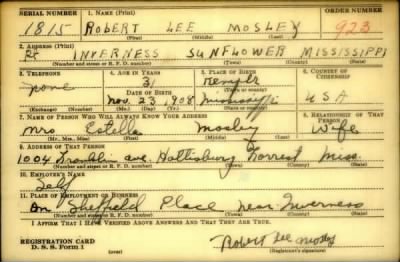 SERIAL NUMBER 1. NAME (Print) ORDER NUMBER
1815 ROBERT LEE MOSLEY 923
2. ADDRESS (Print)
INVERNESS SUNFLOWER MISSISSIPPI
(Number and street or R. F. D. number) (Town) (County) (State)
3. TELEPHONE 4. AGE IN YEARS 5. PLACE OF BIRTH 6. COUNTRY OF CITIZENSHIP
none 31
DATE OF BIRTH
Nov. 23, 1908 Mississippi USA
(Exchange) (Number) (Mo.) (Day) (Yr.) (State or country)
7. NAME OF PERSON WHO WILL ALWAYS KNOW YOUR ADDRESS 8. RELATIONSHIP OF THAT PERSON
Mrs Estella Mosley Wife
(Mr., Mrs., Miss) (First) (Middle) (Last)
9. ADDRESS OF THAT PERSON
1004 Franklin ave. Hattisburg Forrest Miss.
(Number and street or R. F. D. number) (Town) (County) (State)
10. EMPLOYER'S NAME
Self
11. PLACE OF EMPLOYMENT OR BUSINESS
On Sheffield Place near Inverness
(Number and street or R. F. D. number) (Town) (County) (State)
I AFFIRM THAT I HAVE VERIFIED ABOVE ANSWERS AND THAT THEY ARE TRUE.
REGISTRATION CARD Robert Lee Mosley
D. S. S. Form 1 (over) (Registrant's signature)